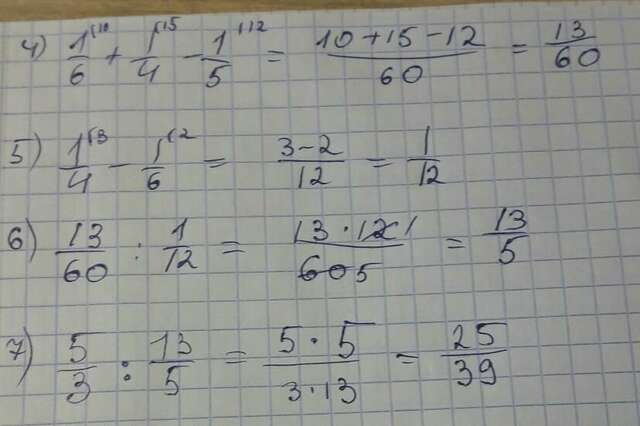 4) 1/6 ⁽¹⁰ + 1/4 ⁽¹⁵ - 1/5 ⁽¹² = (10 + 15 - 12)/60 = 13/60
5) 1/4 ⁽³ - 1/6 ⁽² = (3 - 2)/12 = 1/12
6) 13/60 : 1/12 = (13 · 12 1)/(60 5) = 13/5
7) 5/3 : 13/5 = (5 · 5)/(3 · 13) = 25/39